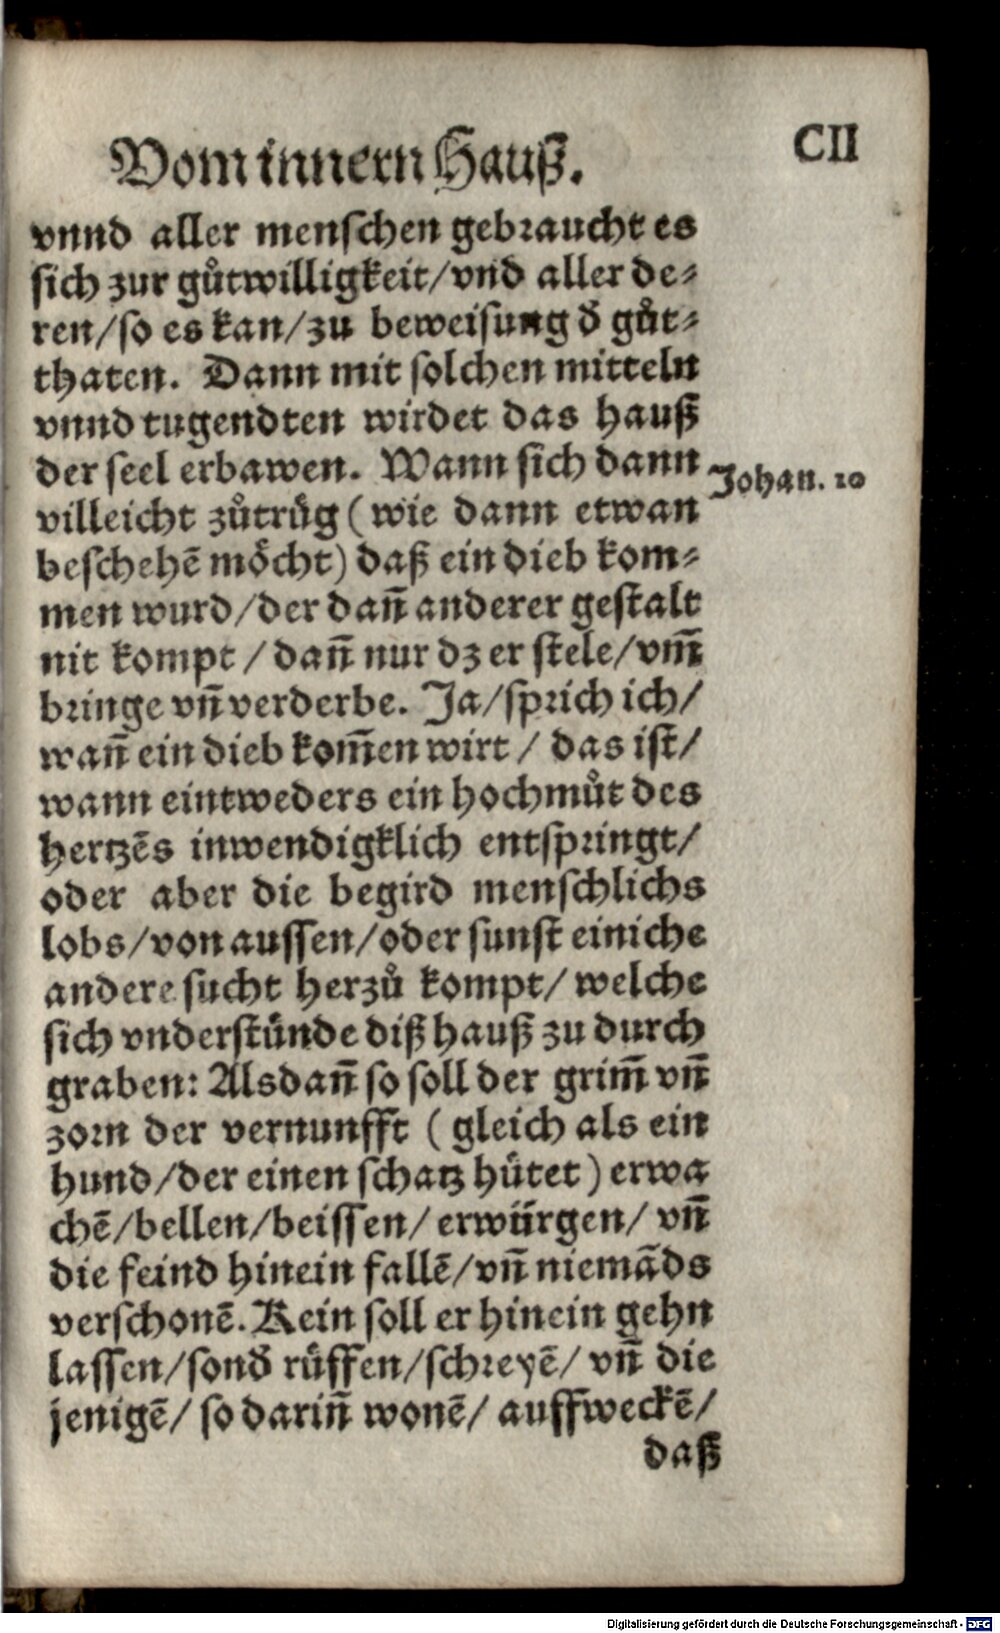 CII
Vom innern Hauß.
vnnd aller menschen gebraucht es
sich zur gůtwilligkeit/vnd aller de⸗
ren/so es kan/zu beweisung đ gůt⸗
thaten. Dann mit solchen mitteln
vnnd tugendten wirdet das hauß
der seel erbawen. Wann sich dann
Johan. 10
villeicht zůtrüg (wie dann etwan
beschehē möcht) daß ein dieb kom⸗
men wurd/der dañ anderer gestalt
nit kompt / dañ nur dz er stele/vm̄
bringe vñ verderbe. Ja/sprich ich/
wañ ein dieb kom̄en wirt / das ist/
wann eintweders ein hochmůt des
hertzēs inwendigklich entspringt/
oder aber die begird menschlichs
lobs/von aussen/oder sunst einiche
andere sucht herzů kompt/ welche
sich vnderstünde diß hauß zu durch
graben: Alsdañ so soll der grim̄ vñ
zorn der vernunfft ( gleich als ein
hund/der einen schatz hütet) erwa
chē/bellen/beissen/ erwürgen/ vñ
die feind hinein fallē/vñ niemāds
verschonē. Kein soll er hinein gehn
lassen/sonđ rüffen/schreyē/ vñ die
jenigē/ so dariñ wonē/ auffweckē/
daß
Digitalisierung gefördert durch die Deutsche Forschungsgemeinschaft - DFG